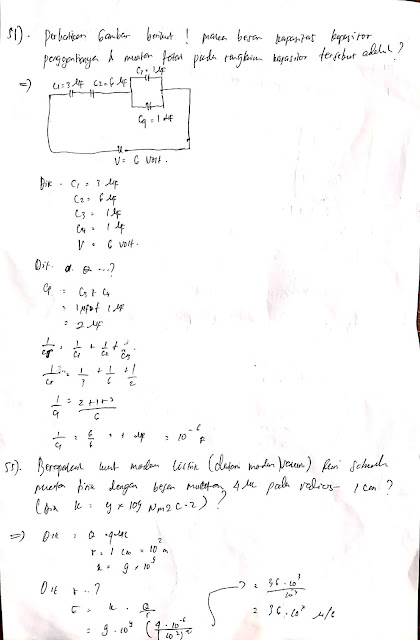 51). Perhatikan Gambar berikut ! maka besar kapasitas kapasitor
penggantinya & muatan total pada rangkaian kapasitor tersebut adalah ?
=)
C1 = 3 μF C2 = 6 μF
C4 = 1 μF
V = 6 Volt.
Dik - C1 = 3 μF
C2 = 6 μF
C3 = 1 μF
C4 = 1 μF
V = 6 volt.
Dit. Q ...?
Cp = C3 + C4
= 1 μF + 1 μF
= 2 μF
= 1/C1 + 1/C2 +
= 1/3 + 1/6 + 1/2
= 2+1+3 / 6
= 6/6 = 1 μF = 10^-6 F
55). Berapakah kuat medan listrik (dalam medan vacum) dari sebuah
muatan titik dengan besar muatan 4 μC pada radius 1 cm ?
K = 9 x 109 Nm2 C-2) ?
=) Dik :
r = 1 cm = 10^-2 m
k = 9.10^9
Dit ..?
= k . Q
= 9.10^9 (4.10^-6
= 36.10^3
= 36.10^7